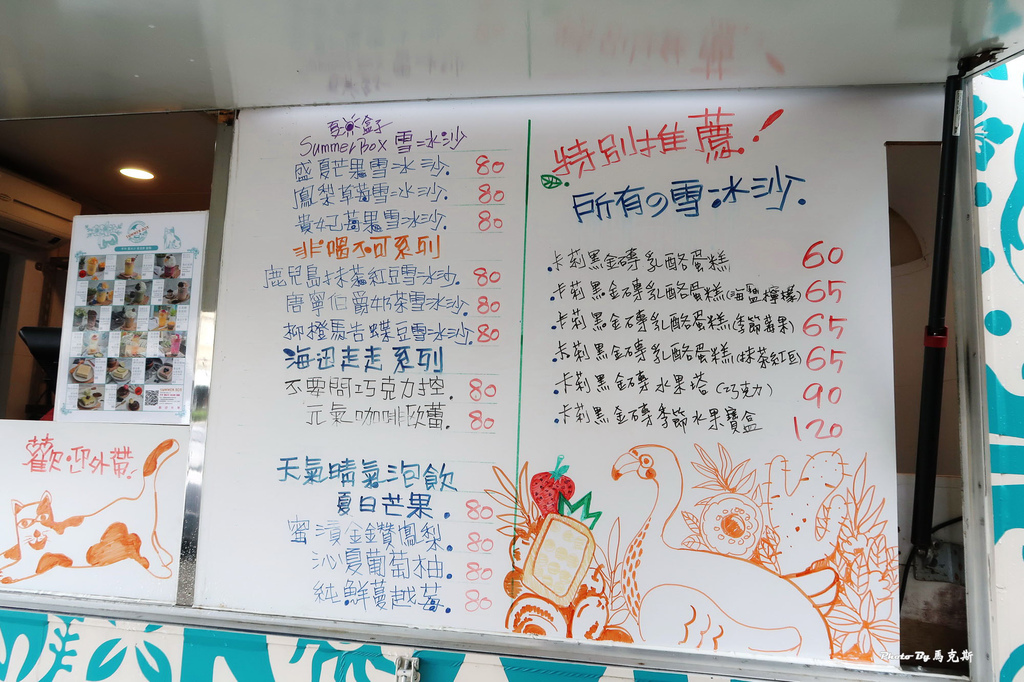 夏米盒子
Summer Box 雪冰沙
盛夏芒果雪冰沙. 80
鳳梨草莓雪冰沙. 80
貴妃莓果雪冰沙. 80
非喝不可系列
鹿兒島抹茶紅豆雪冰沙. 80
唐寧伯爵奶茶雪冰沙. 80
柳橙馬告蝶豆雪冰沙. 80
海邊走走系列
不零間巧克力控. 80
元氣咖啡歐蕾. 80
天氣晴氣泡飲
夏日芒果. 80
蜜漬金鑽鳳梨. 80
沁夏葡萄柚. 80
純鮮蔓越莓. 80
特別推薦!
所有の雪冰沙.
.卡莉黑金磚乳酪蛋糕 60
.卡莉黑金磚乳酪蛋糕(海鹽檸檬) 65
.卡莉黑金磚乳酪蛋糕(季節莓果) 65
.卡莉黑金磚乳酪蛋糕(抹茶紅豆) 65
.卡莉黑金磚水果塔(巧克力) 90
.卡莉黑金磚季節水果寶盒 120
歡迎外帶
Photo By 馬克斯